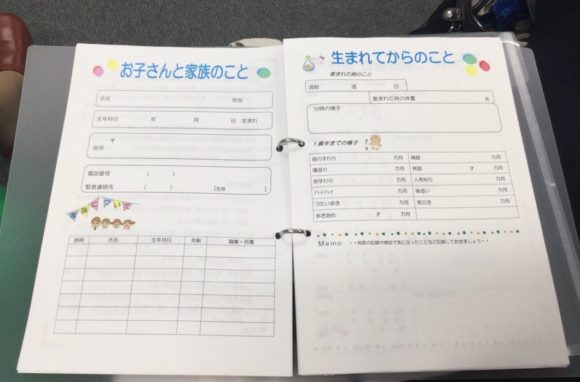 お子さんと家族のこと
氏名 性別
生年月日 年 月 日 生まれ
〒
住所
電話番号 ( )
緊急連絡先 ( ) [名称 ]
続柄 氏名 生年月日 年齢 職業・所属
生まれてからのこと
産まれた時のこと
週数 週 日
産まれた時の体重 g
分娩の様子
1歳半までの様子
首のすわり カ月 喃語 カ月
寝返り カ月 発語 才 カ月
おすわり カ月 人見知り カ月
ハイハイ カ月 後追い カ月
つたい歩き カ月 夜泣き カ月
歩き始め 才 カ月
Memo ・・成長の記録や検診で気になったことなど記録しておきましょう・・